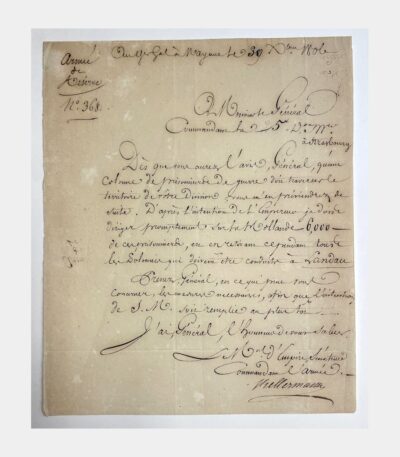 Armée
de
Réserve
N.º 368.
Au Q.er Gal à Mayence le 30 Xbre 1806
A Monsieur le Général
Commandant la 5e Don Mre
à Strasbourg
Dès que vous aurez l'avis, Général, qu'une
colonne de prisonniers de guerre doit traverser le
territoire de votre Divon vous m'en préviendrez de
suite. D'après l'intention de l'Empereur je dois
diriger promptement sur la Hollande 6,000
de ces prisonniers, en en retirant cependant tous
les Polonais qui doivent être conduits à Landau
Prenez Général, en ce qui vous
concerne, les mesures nécessaires, afin que l'intention
de S. M. soit remplie au plus tôt.
J'ai, Général, l'honneur de vous saluer.
Le Mal d'Empire, Sénateur
Commandant l'armée.
Kellermann